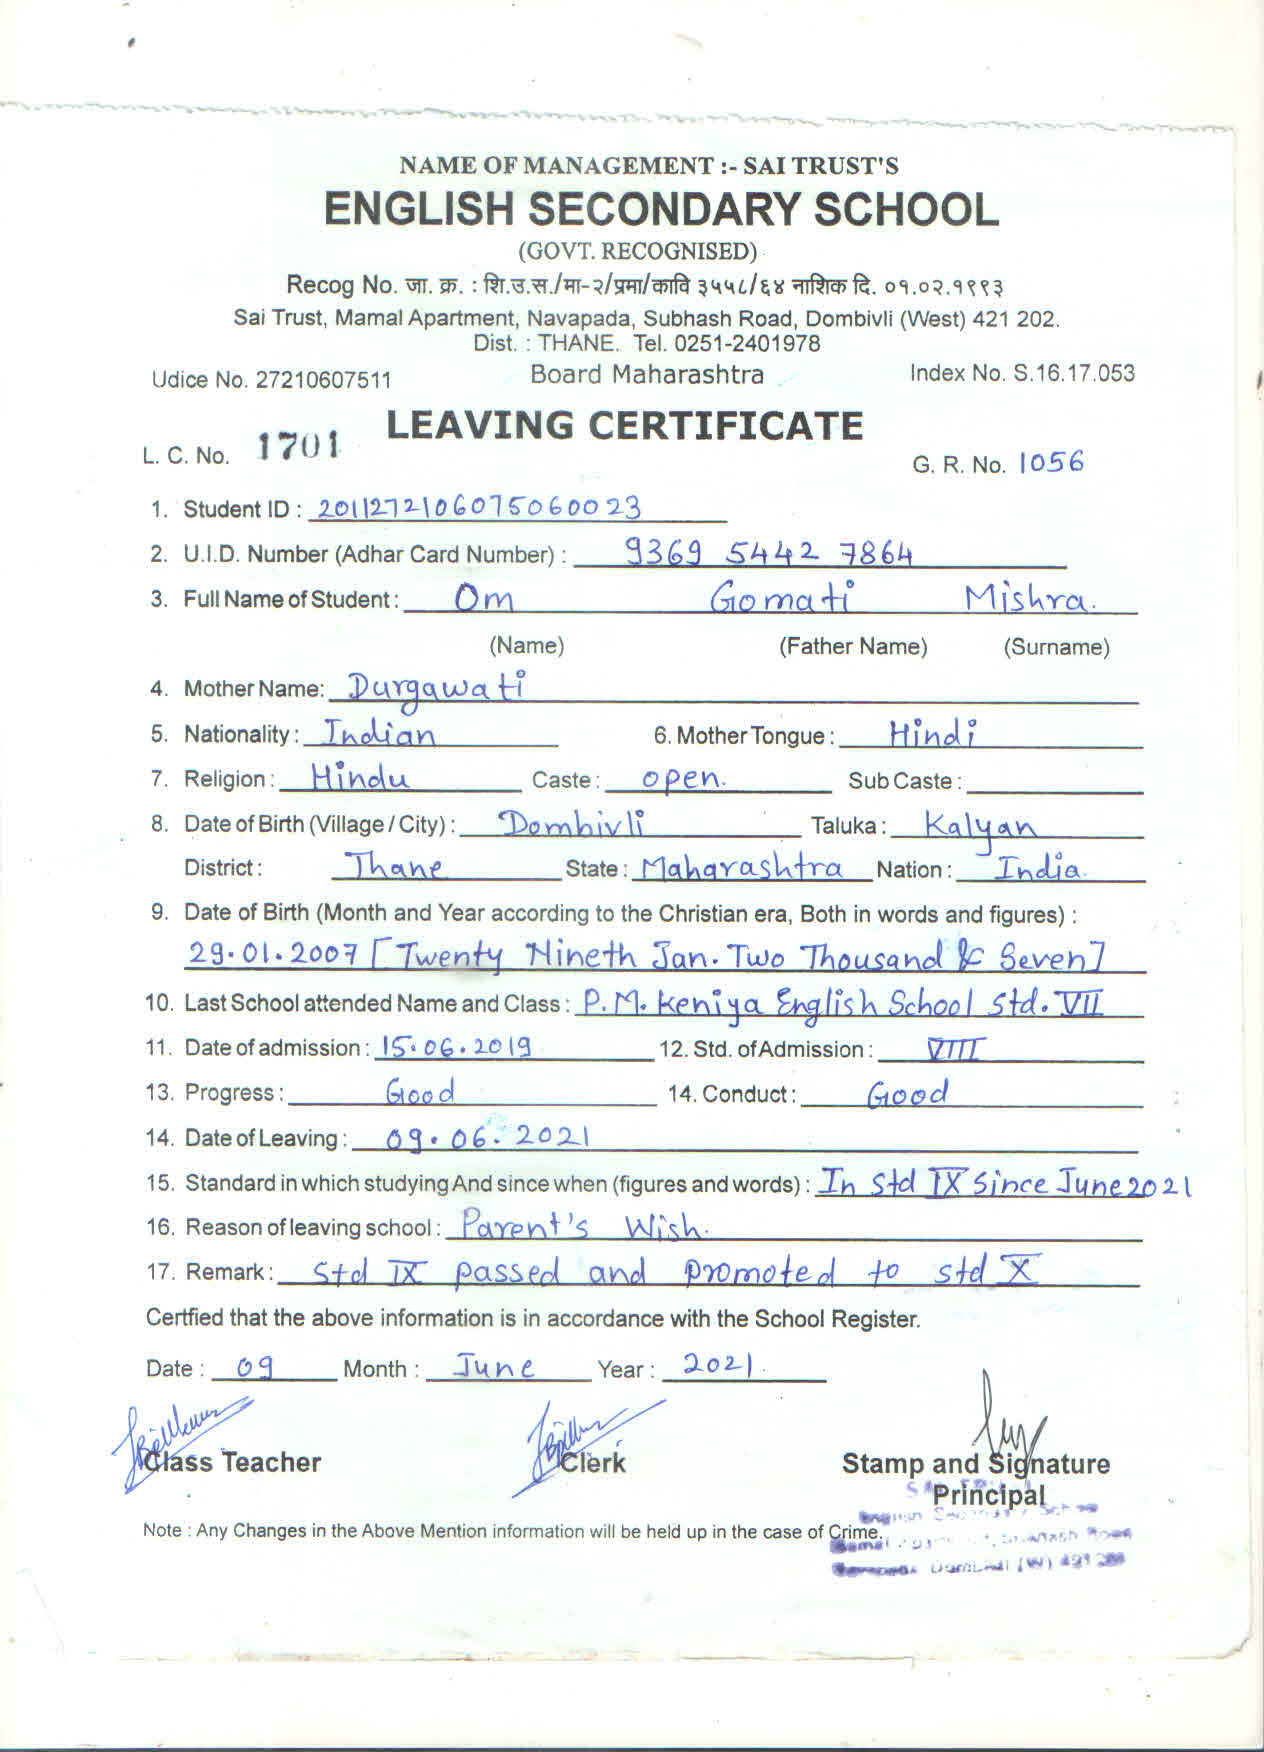 NAME OF MANAGEMENT :- SAI TRUST'S
ENGLISH SECONDARY SCHOOL
(GOVT. RECOGNISED)
Recog No. जा. क्र. : शि.उ.स./मा-२/प्रमा/कावि ३५५८/६४ नाशिक दि. ०१.०२.१९९३
Sai Trust, Mamal Apartment, Navapada, Subhash Road, Dombivli (West) 421 202.
Dist. : THANE. Tel. 0251-2401978
Udice No. 27210607511 Board Maharashtra Index No. S.16.17.053
LEAVING CERTIFICATE
L. C. No. 1701 G. R. No. 1056
1. Student ID : 2011272106075060023
2. U.I.D. Number (Adhar Card Number) : 9369 5442 7864
3. Full Name of Student : Om Gomati Mishra.
(Name) (Father Name) (Surname)
4. Mother Name: Durgawati
5. Nationality : Indian 6. Mother Tongue : Hindi
7. Religion : Hindu Caste : open. Sub Caste :
8. Date of Birth (Village / City) : Dombivli Taluka : Kalyan
District : Thane State : Maharashtra Nation : India.
9. Date of Birth (Month and Year according to the Christian era, Both in words and figures) :
29.01.2007 [Twenty Nineth Jan. Two Thousand & Seven]
10. Last School attended Name and Class : P.M. Keniya English School Std. VII
11. Date of admission : 15.06.2019 12. Std. of Admission : VIII
13. Progress : Good 14. Conduct : Good
14. Date of Leaving : 09.06.2021
15. Standard in which studying And since when (figures and words) : In Std IX Since June 2021
16. Reason of leaving school : Parent's Wish.
17. Remark : Std IX passed and promoted to std X
Certfied that the above information is in accordance with the School Register.
Date : 09 Month : June Year : 2021.
Class Teacher Clerk Stamp and Signature
Principal
English Secondary School
Note : Any Changes in the Above Mention information will be held up in the case of Crime.